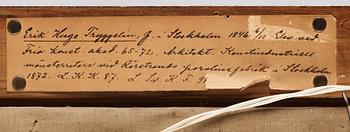 Erik Hugo Tryggelin, f. i Stockholm 1846 4/12. Elev vid
Fria konst akad. 65-72. Arkitekt. Konstindustriell
mönsterritare vid Rörstrands porslinsfabrik i Stockholm
1872. L. K. K. 87. L. Ls. K. F. 91